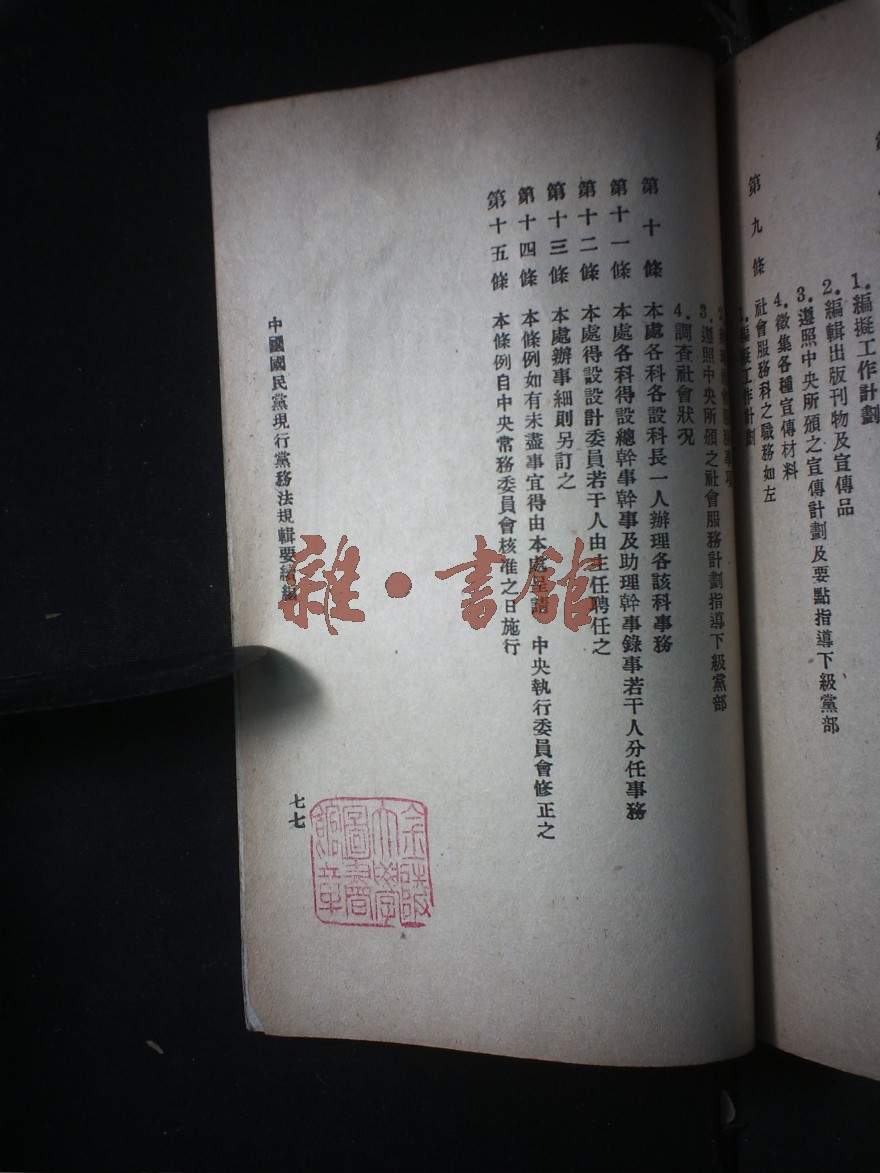 1. 編擬工作計劃
2. 編輯出版刊物及宣傳品
3. 遵照中央所頒之宣傳計劃及要點指導下級黨部
4. 徵集各種宣傳材料
第九條 社會服務科之職務如左
1. 編擬工作計劃
3. 遵照中央所頒之社會服務計劃指導下級黨部
4. 調查社會狀況
第十條 本處各科各設科長一人辦理各該科事務
第十一條 本處各科得設總幹事幹事及助理幹事錄事若干人分任事務
第十二條 本處得設設計委員若干人由主任聘任之
第十三條 本處辦事細則另訂之
第十四條 本條例如有未盡事宜得由本處呈請 中央執行委員會修正之
第十五條 本條例自中央常務委員會核准之日施行
中國國民黨現行黨務法規輯要續編
七七
金陵大學圖書館章
雜·書館